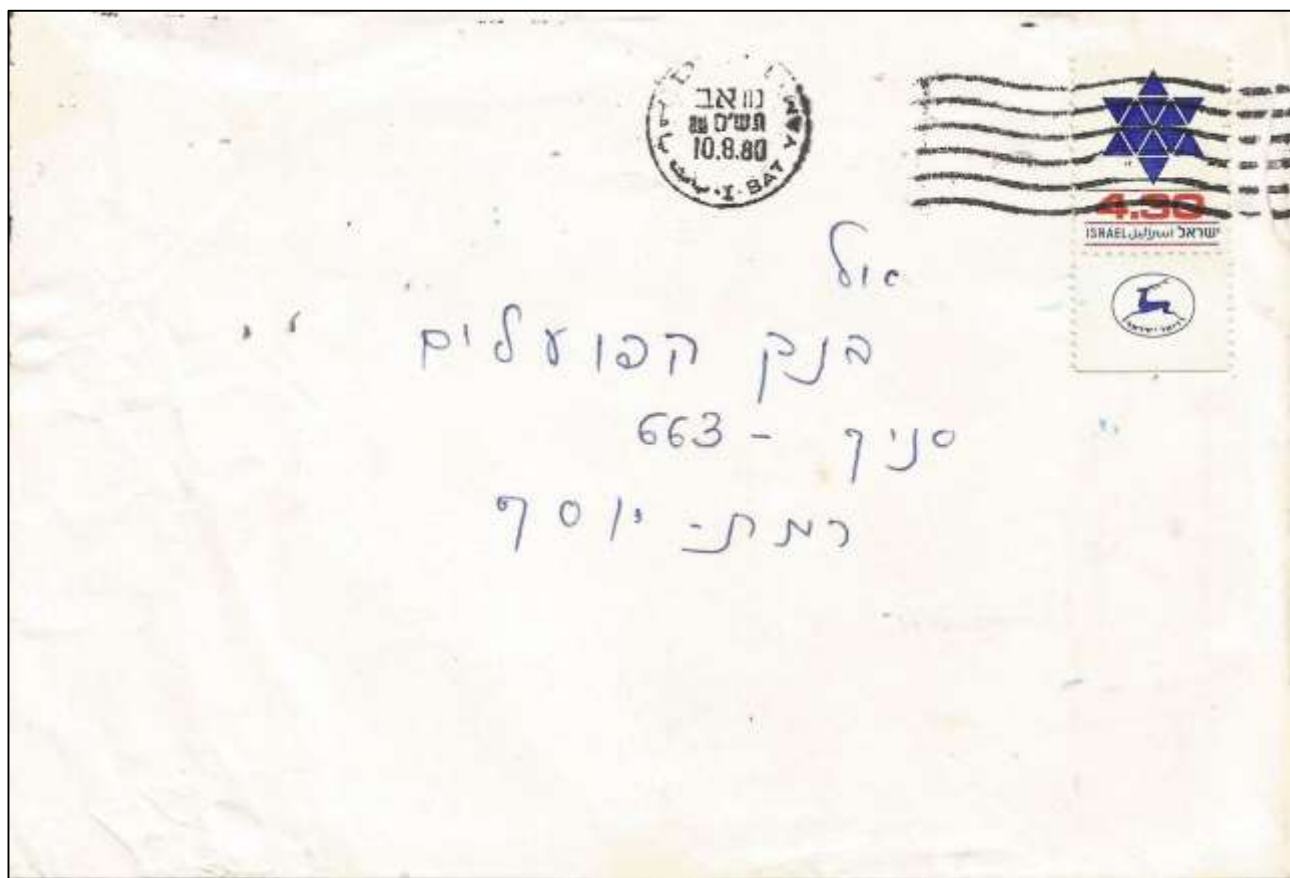 כח אב
תש"מ
10.8.80
BAT YAM
4.30
ISRAEL اسرائيل ישראל
דואר ישראל
אל
בנק הפועלים
סניף - 663
רמת - יוסף